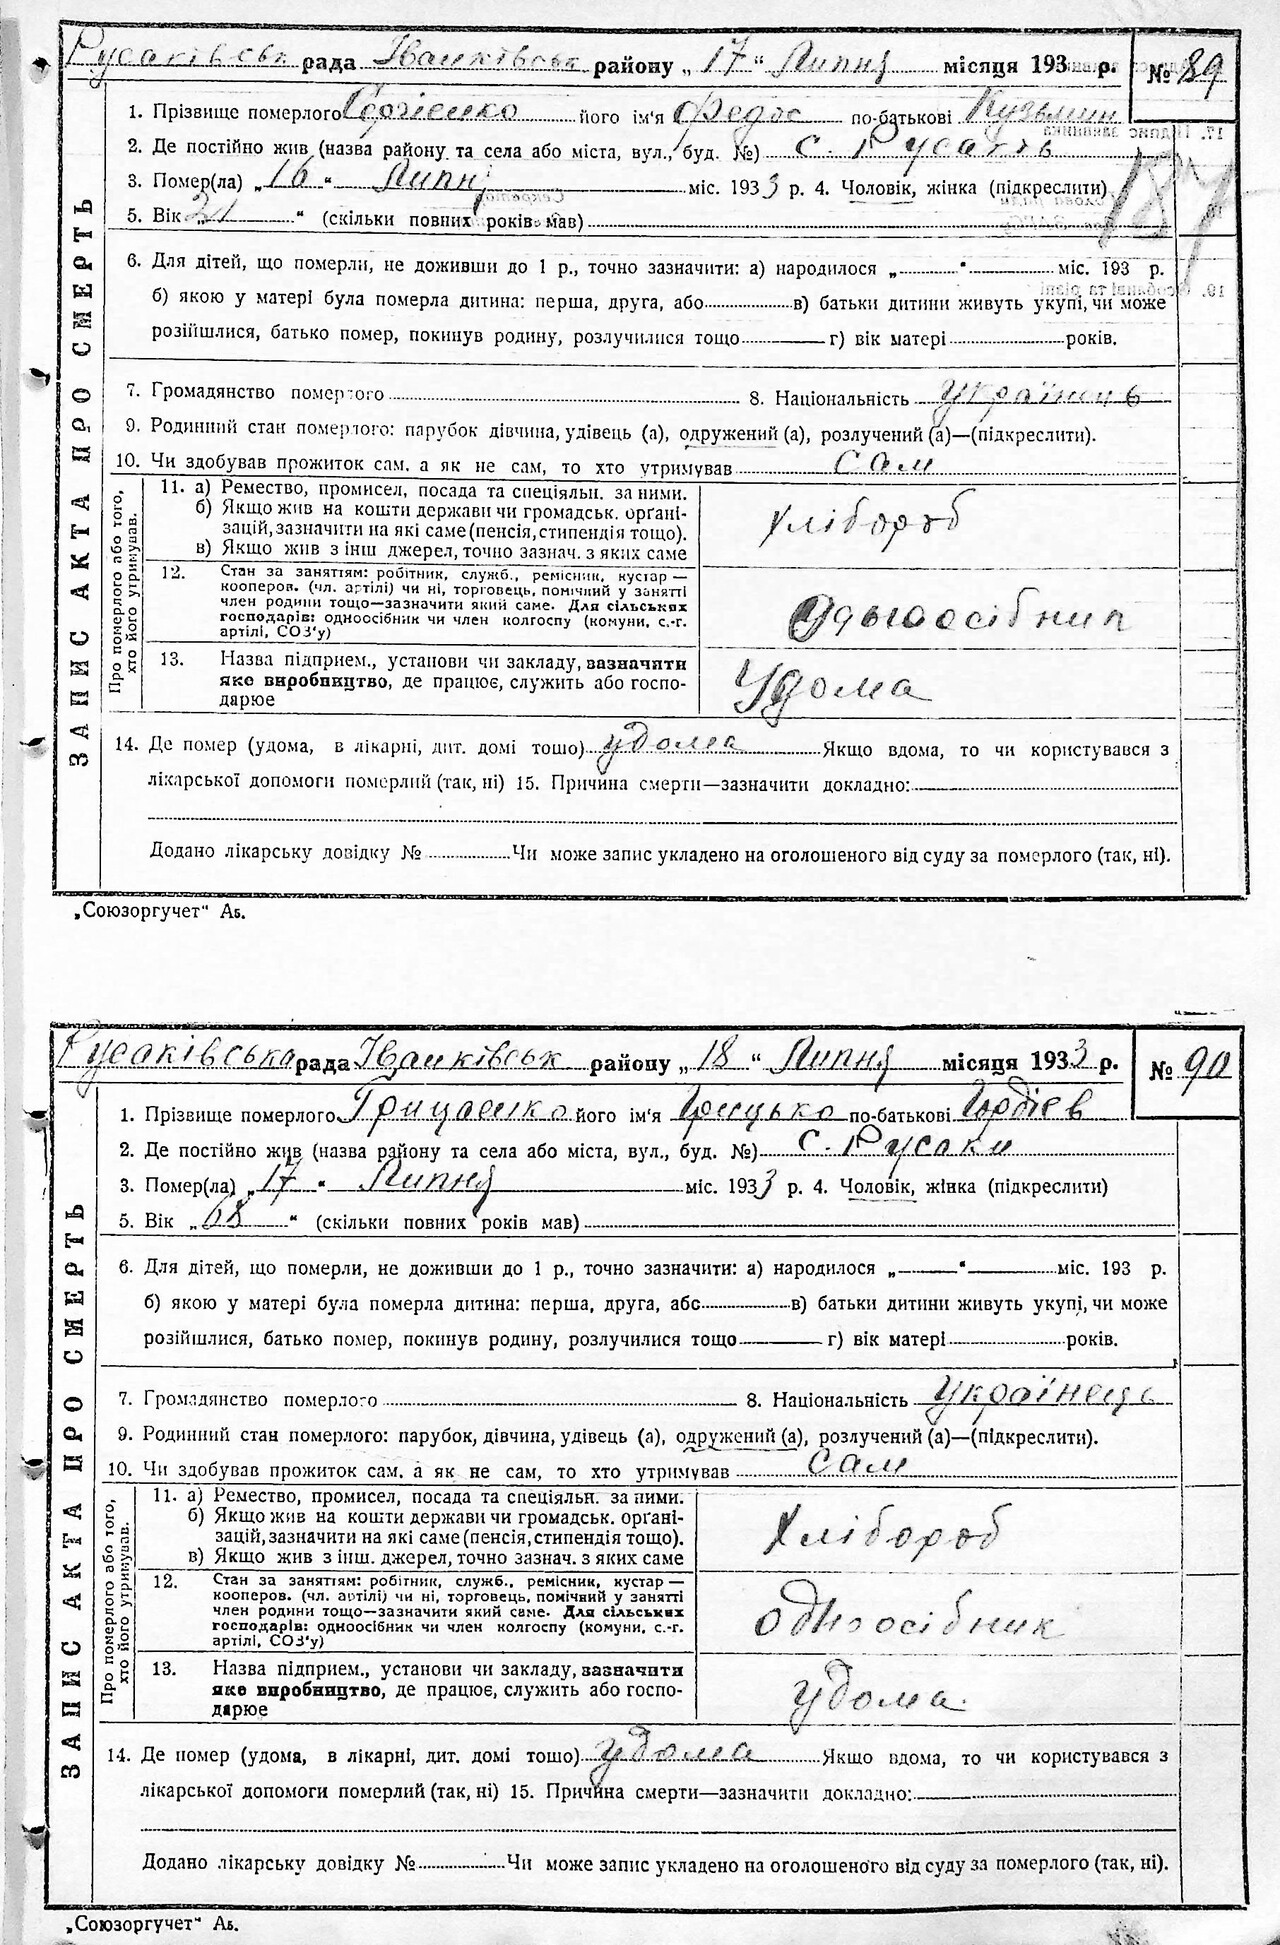 Русаківськ рада Іванківськ району „17“ Липня місяця 1933 р. № 89
1. Прізвище померлого Сергієнко його ім'я Федос по-батькові Кузьмин
2. Де постійно жив (назва району та села або міста, вул., буд. №) с. Русаків
3. Помер(ла) „16“ Липня міс. 1933 р. 4. Чоловік, жінка (підкреслити)
5. Вік “ (скільки повних років мав)
6. Для дітей, що померли, не доживши до 1 р., точно зазначити: а) народилося „ “ міс. 193 р.
б) якою у матері була померла дитина: перша, друга, або в) батьки дитини живуть укупі, чи може
розійшлися, батько помер, покинув родину, розлучилися тощо г) вік матері років.
7. Громадянство померлого 8. Національність українець
9. Родинний стан померлого: парубок дівчина, удівець (а), одружений (а), розлучений (а)—(підкреслити).
10. Чи здобував прожиток сам. а як не сам, то хто утримував сам
Про померлого або того, хто його утримував.
11. а) Ремество, промисел, посада та спеціяльн. за ними.
б) Якщо жив на кошти держави чи громадськ. орґані-
зацій, зазначити на які саме (пенсія, стипендія тощо).
в) Якщо жив з інш джерел, точно зазнач. з яких саме
хлібороб
12. Стан за заняттям: робітник, служб., ремісник, кустар —
кооперов. (чл. артілі) чи ні, торговець, помічний у занятті
член родини тощо—зазначити який саме. Для сільських
господарів: одноосібник чи член колгоспу (комуни, с.-г.
артілі, СОЗ'у)
Одноосібник
13. Назва підприєм., установи чи закладу, зазначити
яке виробництво, де працює, служить або госпо-
дарює
Удома
14. Де помер (удома, в лікарні, дит. домі тошо) удома Якщо вдома, то чи користувався з
лікарської допомоги померлий (так, ні) 15. Причина смерти—зазначити докладно:
Додано лікарську довідку № Чи може запис укладено на оголошеного від суду за померлого (так, ні).
ЗАПИС АКТА ПРО СМЕРТЬ
„Союзоргучет“ Аб.
Русаківська рада Іванківськ району „18“ Липня місяця 1933 р. № 90
1. Прізвище померлого Гриценко його ім'я Грицько по-батькові Гордієв
2. Де постійно жив (назва району та села або міста, вул., буд. №) с. Русаки
3. Помер(ла) „17“ Липня міс. 1933 р. 4. Чоловік, жінка (підкреслити)
5. Вік „68“ (скільки повних років мав)
6. Для дітей, що померли, не доживши до 1 р., точно зазначити: а) народилося „ “ міс. 193 р.
б) якою у матері була померла дитина: перша, друга, або в) батьки дитини живуть укупі, чи може
розійшлися, батько помер, покинув родину, розлучилися тощо г) вік матері років.
7. Громадянство померлого 8. Національність Українець
9. Родинний стан померлого: парубок, дівчина, удівець (а), одружений (а), розлучений (а)—(підкреслити).
10. Чи здобував прожиток сам. а як не сам, то хто утримував сам
Про померлого або того, хто його утримував.
11. а) Ремество, промисел, посада та спеціяльн. за ними.
б) Якщо жив на кошти держави чи громадськ. орґані-
зацій, зазначити на які саме (пенсія, стипендія тощо).
в) Якщо жив з інш. джерел, точно зазнач. з яких саме
хлібороб
12. Стан за заняттям: робітник, служб., ремісник, кустар —
кооперов. (чл. артілі) чи ні, торговець, помічний у занятті
член родини тощо—зазначити який саме. Для сільських
господарів: одноосібник чи член колгоспу (комуни, с.-г.
артілі, СОЗ'у)
одноосібник
13. Назва підприєм., установи чи закладу, зазначити
яке виробництво, де працює, служить або госпо-
дарює
удома
14. Де помер (удома, в лікарні, дит. домі тошо) удома Якщо вдома, то чи користувався з
лікарської допомоги померлий (так, ні) 15. Причина смерти—зазначити докладно:
Додано лікарську довідку № Чи може запис укладено на оголошеного від суду за померлого (так, ні).
ЗАПИС АКТА ПРО СМЕРТЬ
„Союзоргучет“ Аб.